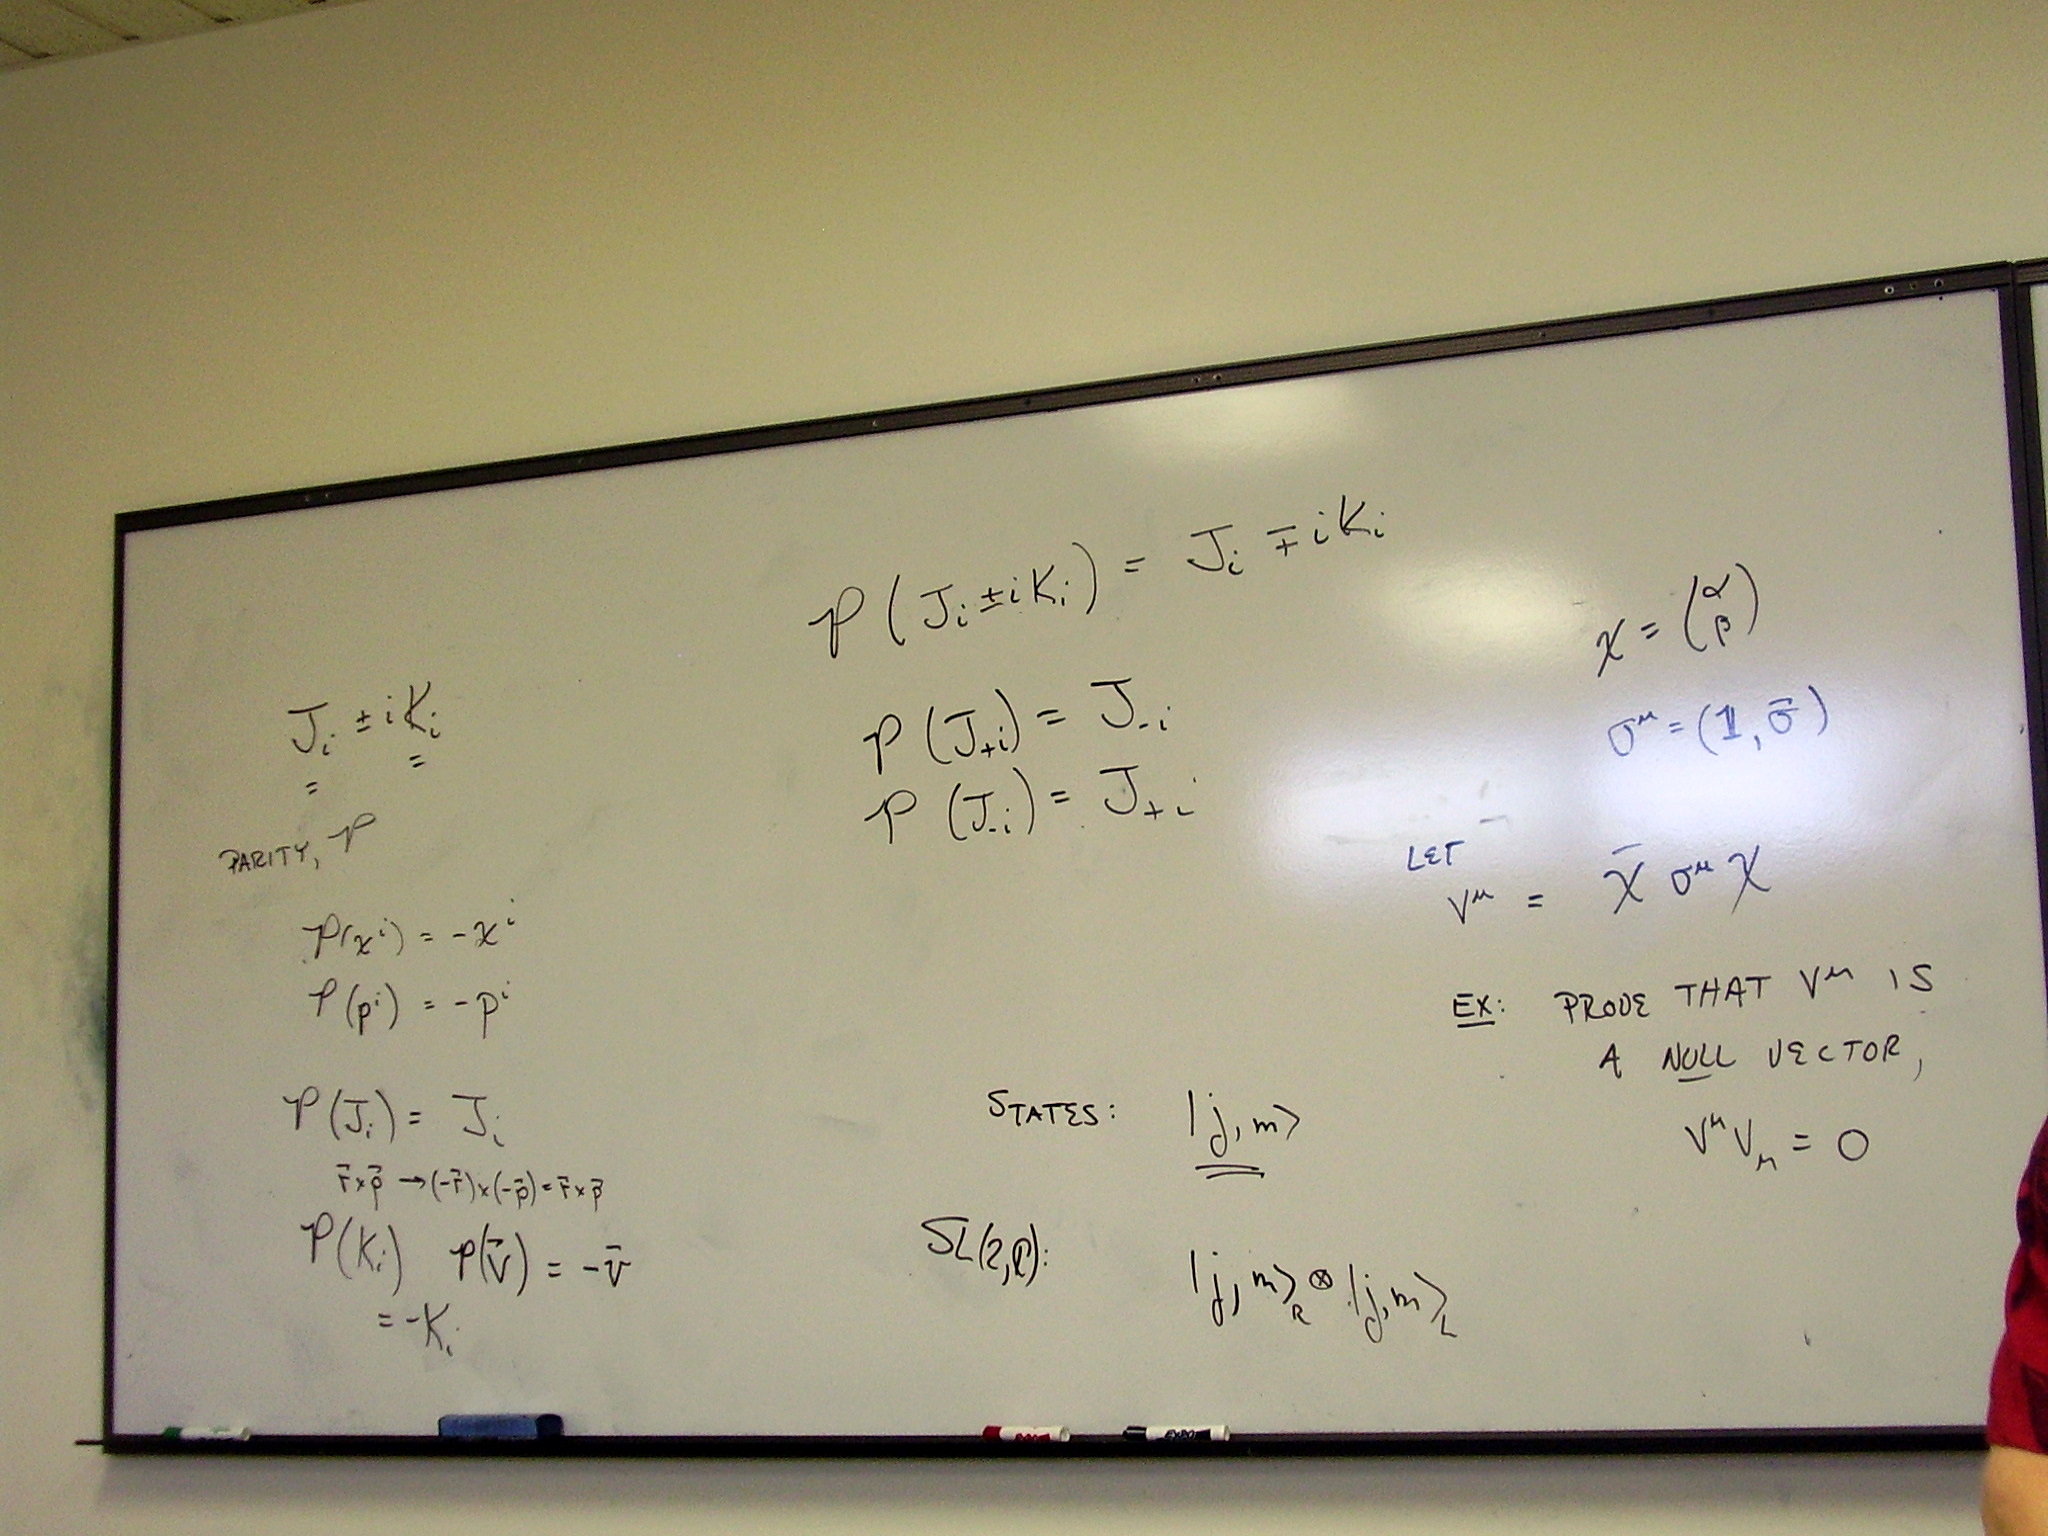 J_i ± i K_i
= =
PARITY, P
P(x^i) = -x^i
P(p^i) = -p^i
P(J_i) = J_i
r⃗ × p⃗ → (-r⃗) × (-p⃗) = r⃗ × p⃗
P(K_i) P(v⃗) = -v⃗
= -K_i
P(J_i ± i K_i) = J_i ∓ i K_i
P(J_{+i}) = J_{-i}
P(J_{-i}) = J_{+i}
STATES: |j, m⟩
SL(2,C): |j, m⟩_R ⊗ |j, m⟩_L
χ = (α β)
σ^μ = (1, σ̄)
LET
V^μ = χ̄ σ^μ χ
EX: PROVE THAT V^μ IS
A NULL VECTOR,
V^μ V_μ = 0
EXPO